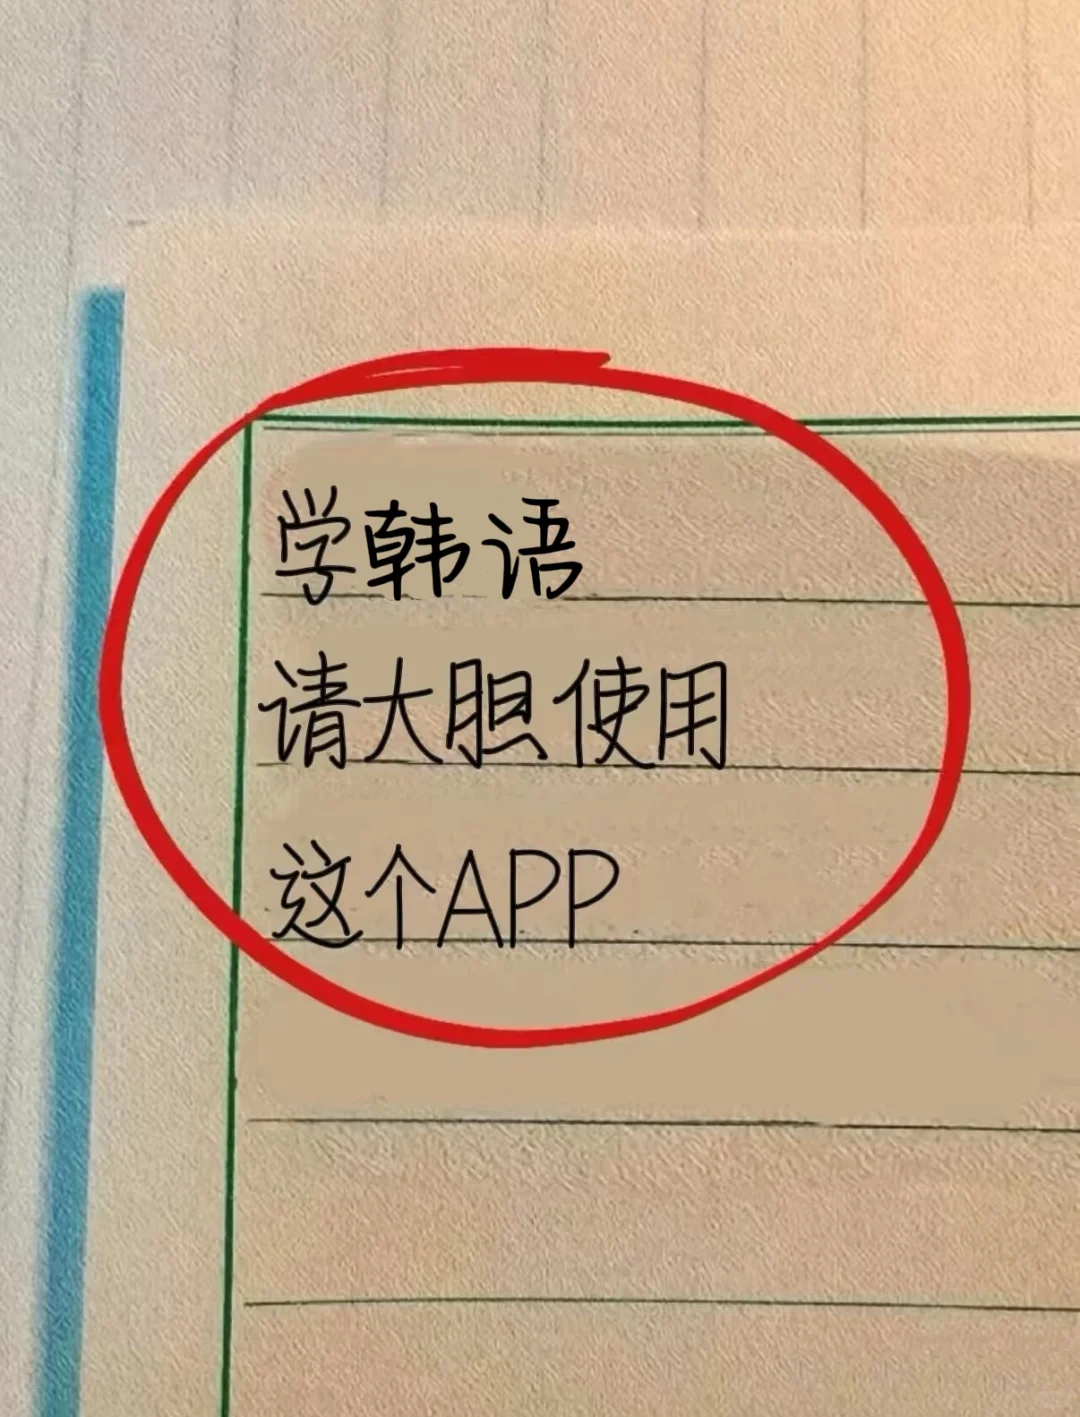 学韩语
请大胆使用
这个APP